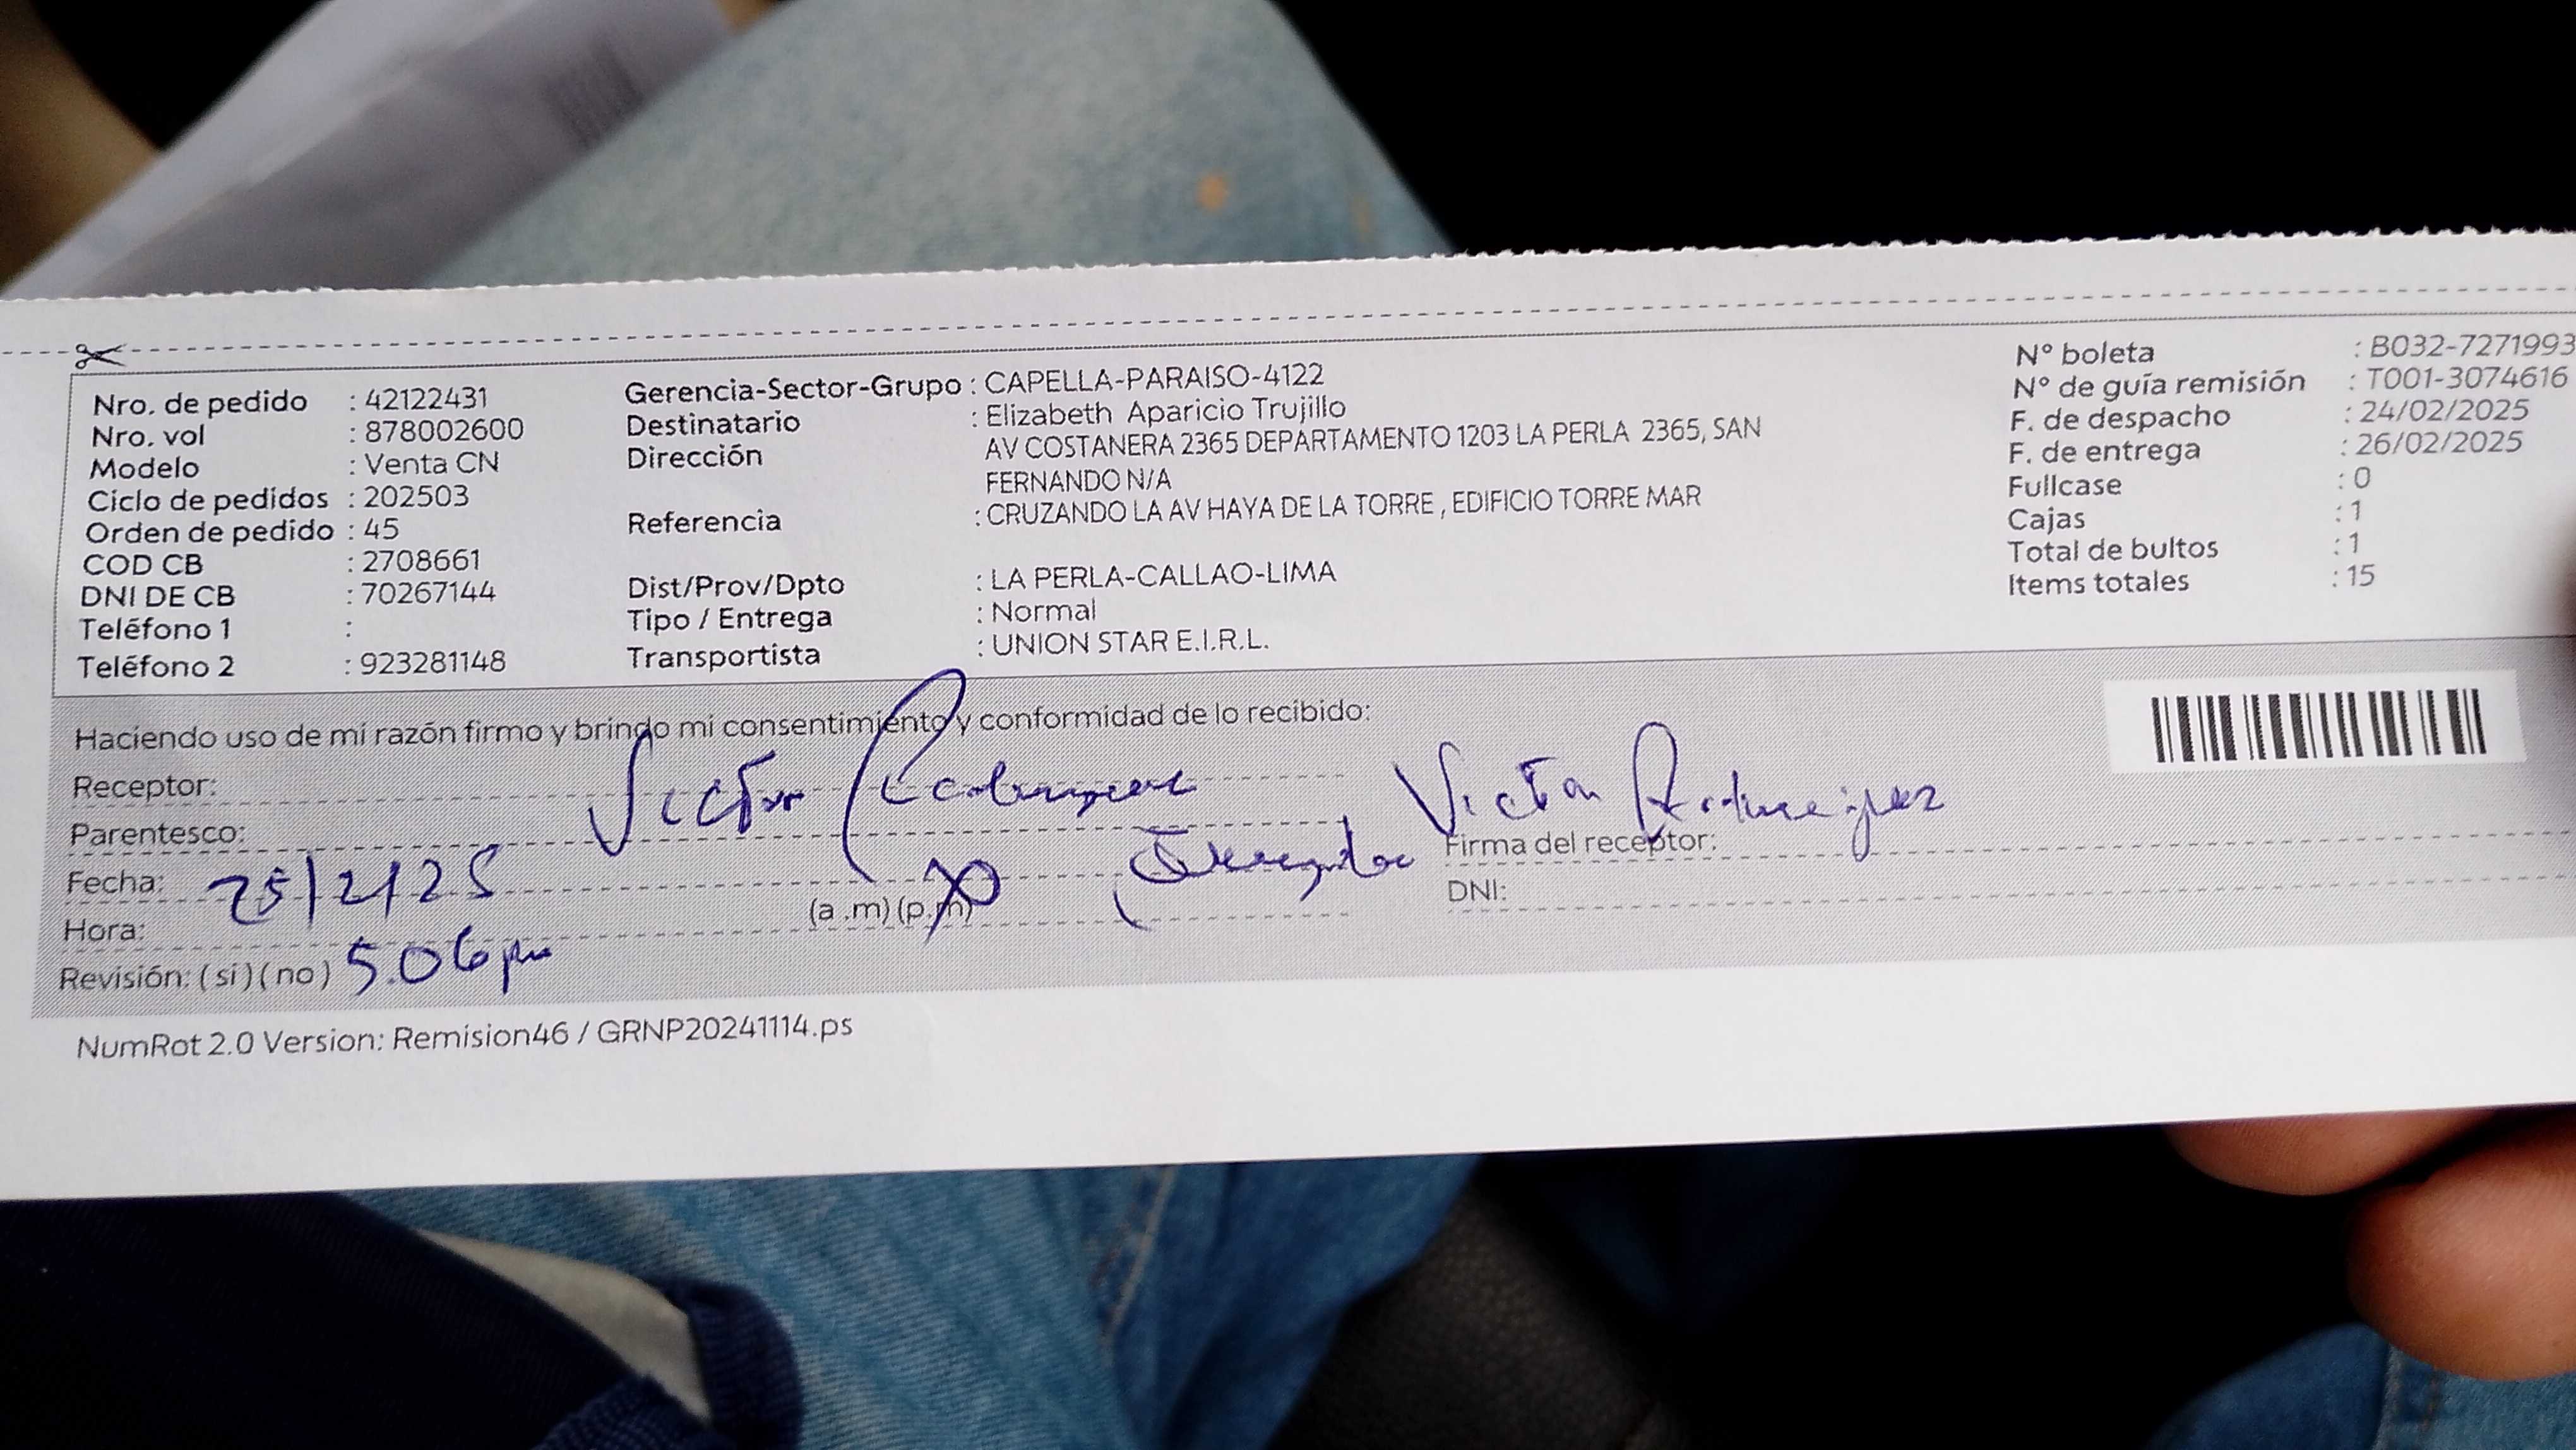 Nro. de pedido : 42122431
Nro. vol : 878002600
Modelo : Venta CN
Ciclo de pedidos : 202503
Orden de pedido : 45
COD CB : 2708661
DNI DE CB : 70267144
Teléfono 1 :
Teléfono 2 : 923281148
Gerencia-Sector-Grupo : CAPELLA-PARAISO-4122
Destinatario : Elizabeth Aparicio Trujillo
Dirección AV COSTANERA 2365 DEPARTAMENTO 1203 LA PERLA 2365, SAN
FERNANDO N/A
Referencia : CRUZANDO LA AV HAYA DE LA TORRE , EDIFICIO TORRE MAR
Dist/Prov/Dpto : LA PERLA-CALLAO-LIMA
Tipo / Entrega : Normal
Transportista : UNION STAR E.I.R.L.
N° boleta : B032-7271993
N° de guía remisión : T001-3074616
F. de despacho : 24/02/2025
F. de entrega : 26/02/2025
Fullcase : 0
Cajas : 1
Total de bultos : 1
Items totales : 15
Haciendo uso de mi razón firmo y brindo mi consentimiento y conformidad de lo recibido:
Receptor: Victor
Parentesco:
Fecha: 25/2/25
Hora: (a .m) (p.m)
Revisión: (si) (no) 5.06 pm
Victor Rodriguez
Firma del receptor:
DNI:
NumRot 2.0 Version: Remision46 / GRNP20241114.ps